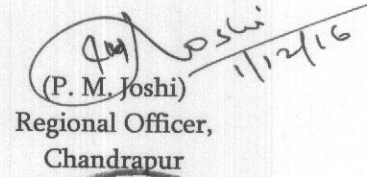 Joshi
1/12/16
(P. M. Joshi)
Regional Officer,
Chandrapur